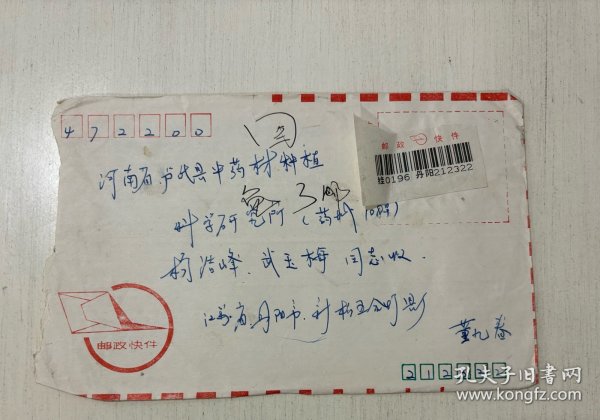 472200
回
邮政快件
挂0196 丹阳212322
河南省卢氏县中药材种植
科学研究所(药科
杨浩峰、武玉梅 同志收.
江苏省丹阳市
董九春
邮政快件
212322
孔夫子旧书网
www.kongfz.com